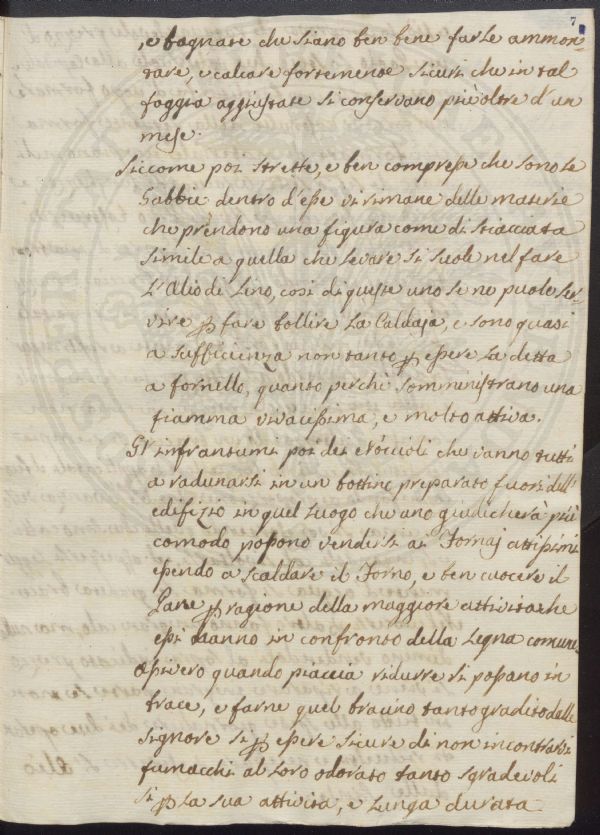 7
, e bagnate che siano ben bene farle ammon=
tare, e calcare fortemente sicuri che in tal
foggia aggiustate si conservano più oltre d'un
mese.
Siccome poi strette, e ben compresse che sono le
Gabbie dentro d'esse vi rimane delle materie
che prendono una figura come di stiacciata
simile a quella che levare si suole nel fare
l'Olio di Lino, così di queste uno se ne puole ser=
vire p fare bollire la Caldaja, e sono quasi
a sufficienza non tanto p essere la detta
a fornello, quanto perchè somministrano una
fiamma vivacissima, e molto attiva.
Gl'infrantumi poi dei Nòccioli che vanno tutti
a radunarsi in un bottino preparato fuori dell'
edifizio in quel luogo che uno giudicherà più
comodo possono vendersi ai Fornaj attissimi
essendo a scaldare il Forno, e ben cuocere il
Pane p ragione della maggiore attività che
essi hanno in confronto della Legna comune,
ossivero quando piaccia ridurre si possano in
brace, e farne quel bracino tanto gradito dalle
Signore sì p essere sicure di non incontrarsi
fumacchi al loro odorato tanto sgradevoli
sì p la sua attività, e lunga durata